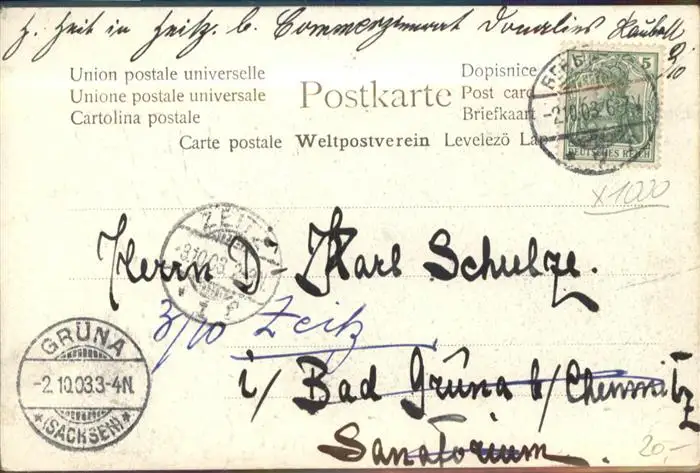 z. Zeit in Zeitz. b. Commerzienrat Donalies
2/10
Union postale universelle
Unione postale universale
Cartolina postale
Postkarte
Dopisnice
Post card
Briefkaart
Carte postale Weltpostverein Levelező Lap
5
DEUTSCHES REICH
-2.10.03.6-7N
x1000
ZEITZ
3.10.03
Herrn D- Karl Schulze.
3/10 Zeitz
i/ Bad Grûna b/ Chemnitz
Sanatorium
GRÜNA
-2.10.03.3-4N.
*(SACHSEN)*
20,-